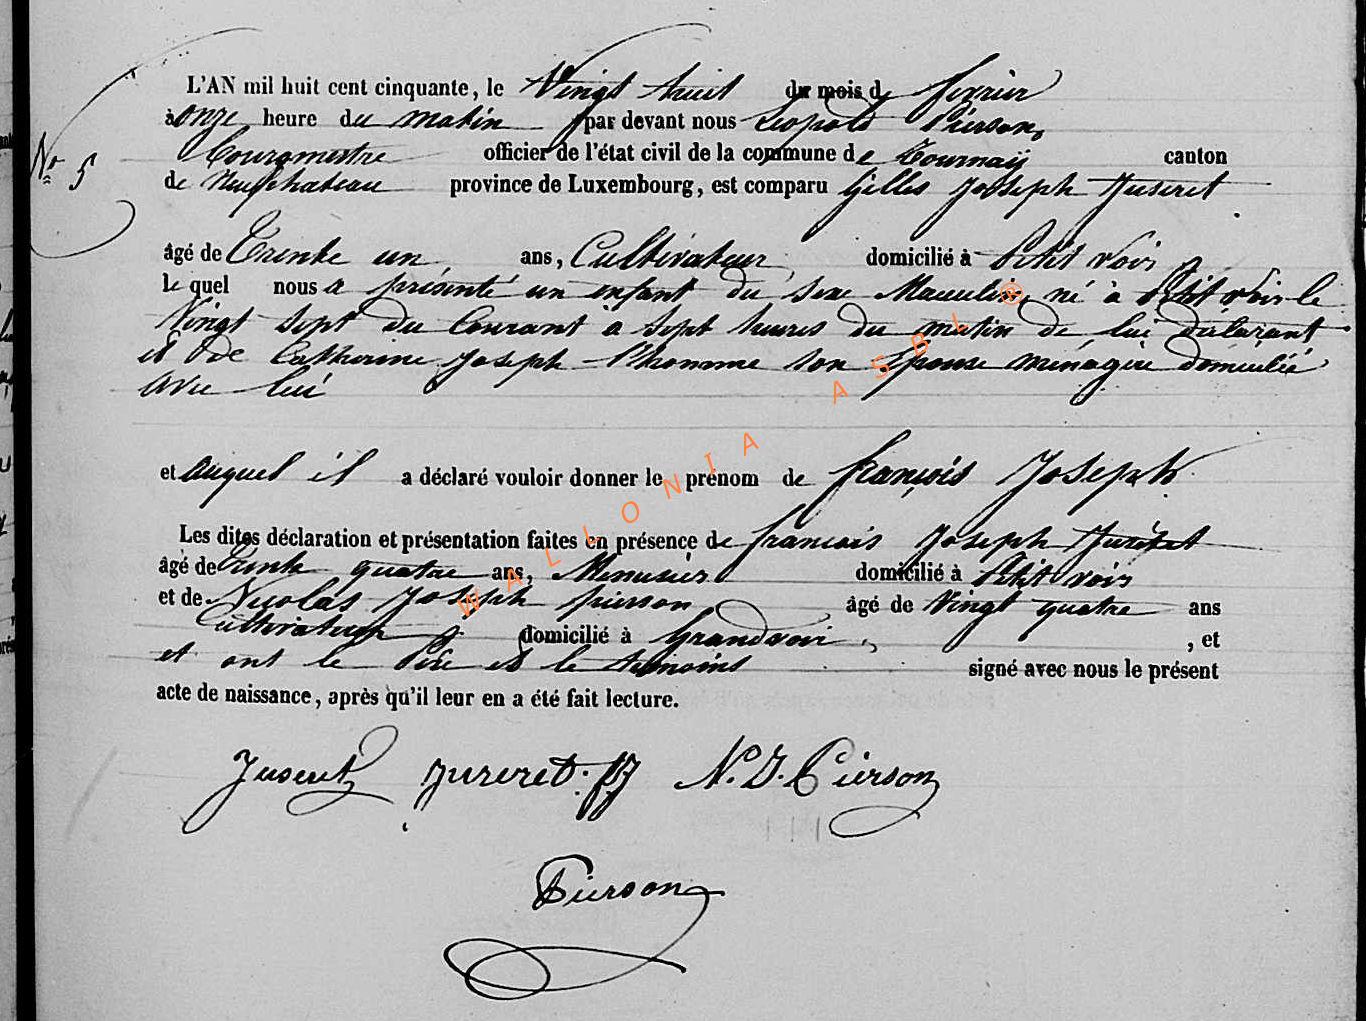 L'AN mil huit cent cinquante, le Vingt huit du mois de fevrier
à onze heure du matin par devant nous Léopold Pierson,
Bourgmestre officier de l'état civil de la commune de Tournay canton
N° 5
de Neufchateau province de Luxembourg, est comparu Gilles Joseph Juseret
âgé de Trente un ans, Cultivateur, domicilié à Petit voir
le quel nous a présenté un enfant du sexe Masculin, né à Petit voir le
Vingt sept du Courant à sept heures du matin de lui déclarant
et de Catherine Joseph L'homme son Epouse ménagère domiciliée
avec lui
et auquel il a déclaré vouloir donner le prénom de françois Joseph
Les dites déclaration et présentation faites en présence de francois Joseph Juseret
âgé de Trente quatre ans, Menusier domicilié à Petit voir
et de Nicolas Joseph pierson âgé de Vingt quatre ans
Cultivateur domicilié à Grandvoir, , et
et ont le Père et le temoins signé avec nous le présent
acte de naissance, après qu'il leur en a été fait lecture.
Juseret Jureret. fJ N. J. Pierson
Pierson
WALLONIA ASBL ®